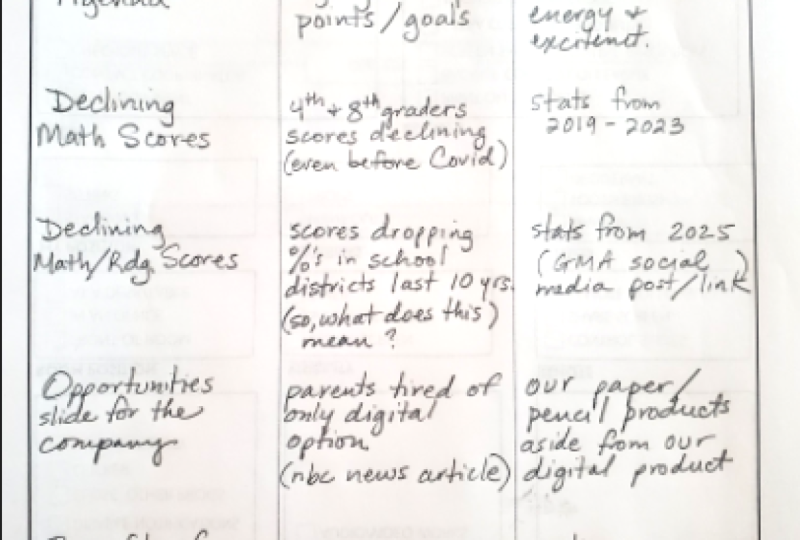 points/goals
energy &
excitenct.
Declining
Math Scores
4th + 8th graders
scores declining
(even before Covid)
stats from
2019 - 2023
Declining
Math/Rdg Scores
scores dropping
%'s in school
districts last 10 yrs.
(so, what does this)
mean?
stats from 2025
(GMA social)
media post/link
Opportunities
slide for the
company
parents tired of
only digital
option
(nbc news article)
our paper/
pencil products
aside from our
digital product